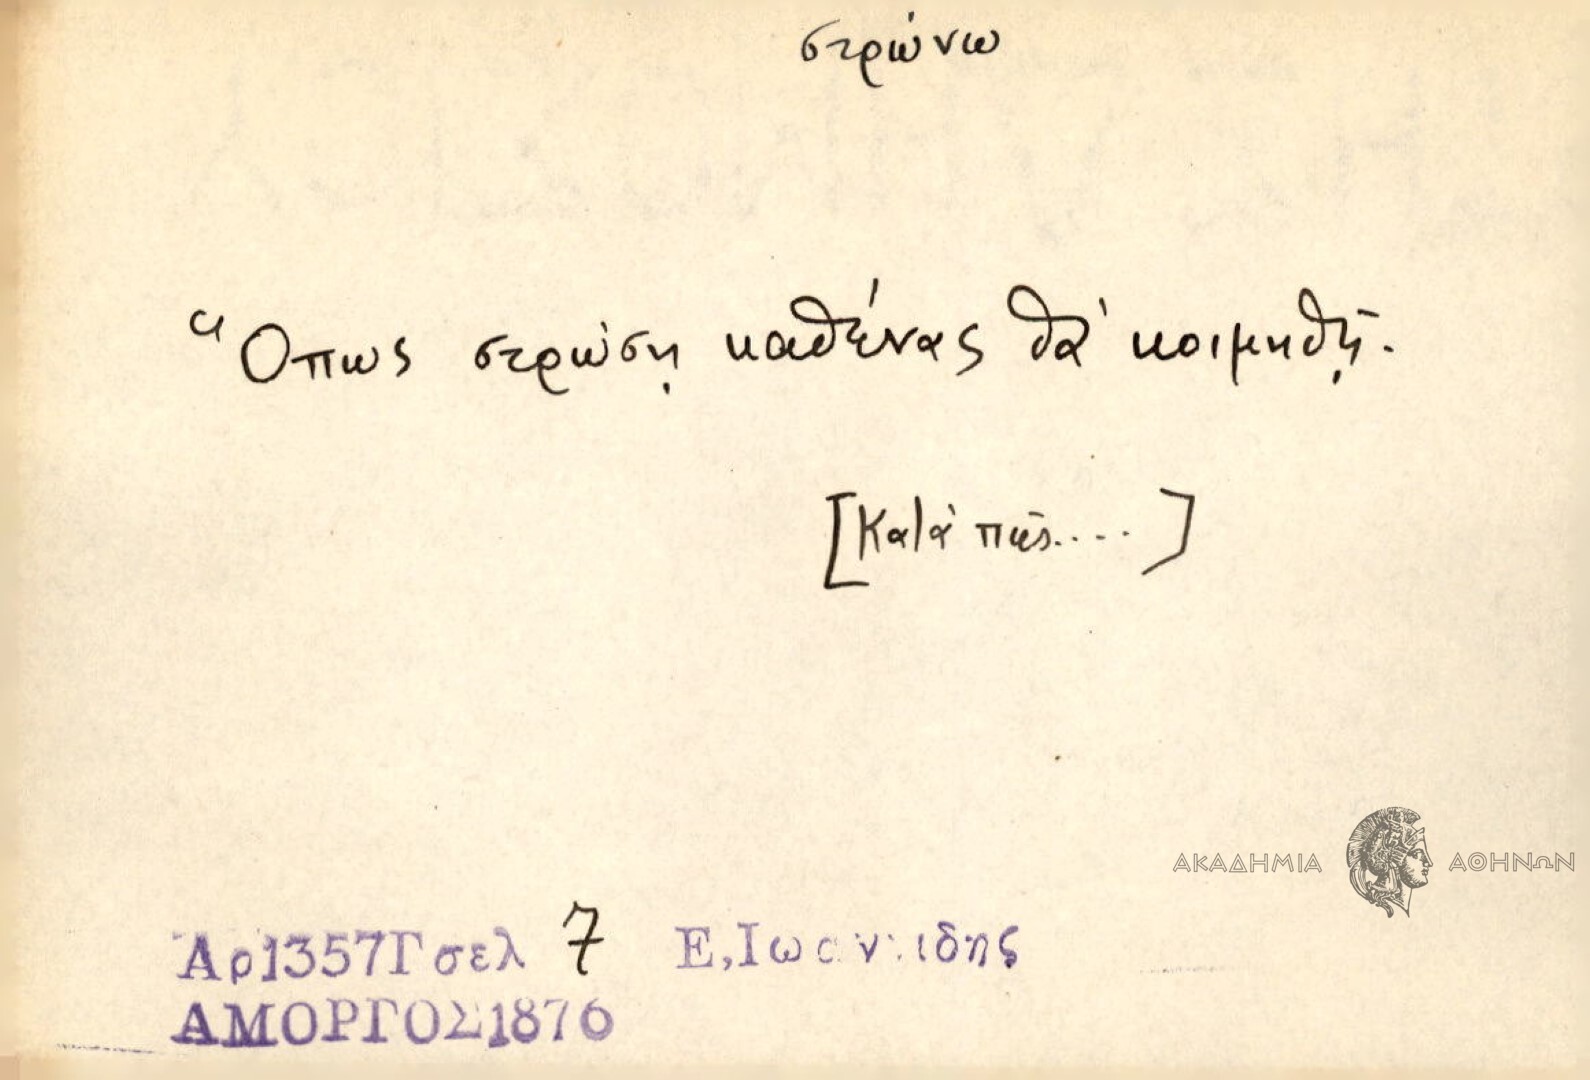 στρώνω
Ὅπως στρώσῃ καθένας θὰ κοιμηθῇ.
[Κατὰ πῶς....]
ΑΚΑΔΗΜΙΑ ΑΘΗΝΩΝ
Ἀρ1357Γ σελ 7 Ε,Ιωαννιδης
ΑΜΟΡΓΟΣ1876